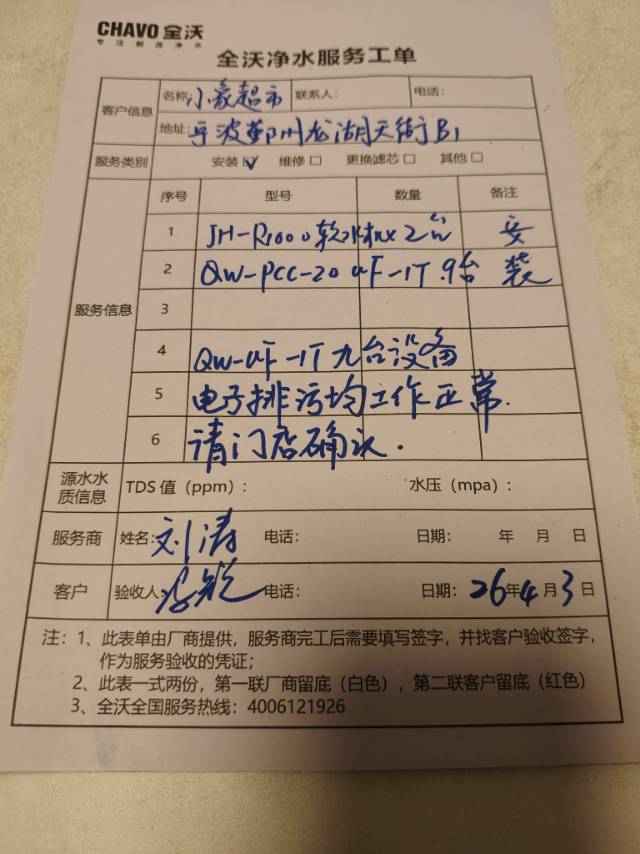 CHAVO 全沃
专注厨房净水
全沃净水服务工单
客户信息 名称: 小象超市 联系人: 电话:
地址: 宁波鄞州龙湖天街B1
服务类别 安装☑ 维修□ 更换滤芯□ 其他□
服务信息 序号 型号 数量 备注
1 JH-R1000软水机x2台 安
2 QW-PCC-20UF-1T 9台 装
3
4 QW-UF-1T九台设备
5 电子排污均工作正常.
6 请门店确认.
源水水质信息 TDS 值(ppm): 水压(mpa):
服务商 姓名: 刘涛 电话: 日期: 年 月 日
客户 验收人: 电话: 日期: 26年4月3日
注: 1、此表单由厂商提供,服务商完工后需要填写签字,并找客户验收签字,
作为服务验收的凭证;
2、此表一式两份,第一联厂商留底(白色),第二联客户留底(红色)
3、全沃全国服务热线: 4006121926